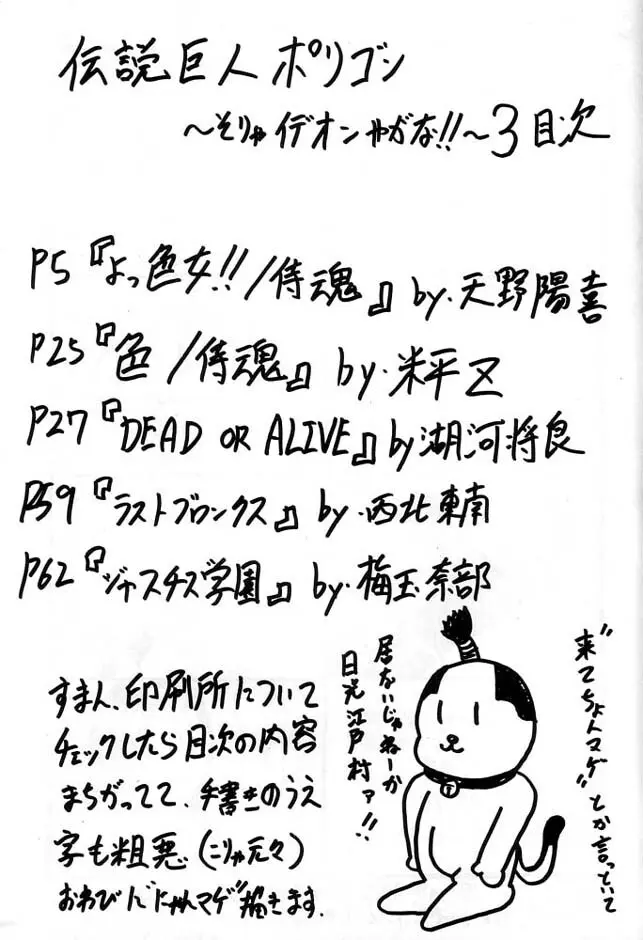 伝説巨人ポリゴン
～そりゃイデオンやがな!!～3目次
P5『よっ色女!!/侍魂』by.天野陽喜
P25『色/侍魂』by.米平Z
P27『DEAD OR ALIVE』by湖河将良
P59『ラストブロンクス』by.西北東南
P62『ジャスチス学園』by.梅玉奈部
すまん、印刷所について
チェックしたら目次の内容
まちがってて、手書きのうえ
字も粗悪（こりゃ元々）
おわびに“にゃんまげ”描きます.
“来てちょんマゲ”とか言っといて
居ないじゃねーか
日光江戸村ァ!!